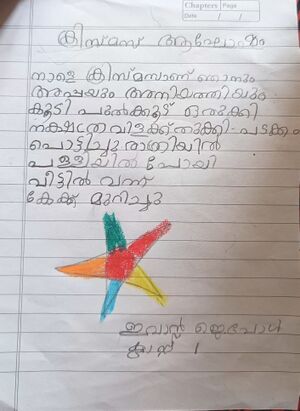 Chapters Page
Date / /
ക്രിസ്മസ് ആഘോഷം
നാളെ ക്രിസ്മസാണ് ഞാനും
അപ്പയും അനിയത്തിയും
കൂടി പുൽക്കൂട് ഒരുക്കി
നക്ഷത്ര വിളക്ക് തൂക്കി പടക്കം
പൊട്ടിച്ചു രാത്രിയിൽ
പള്ളിയിൽ പോയി
വീട്ടിൽ വന്ന്
കേക്ക് മുറിച്ചു
ഇവാന്ന ജെപോൾ
ക്ലാസ്സ് 1